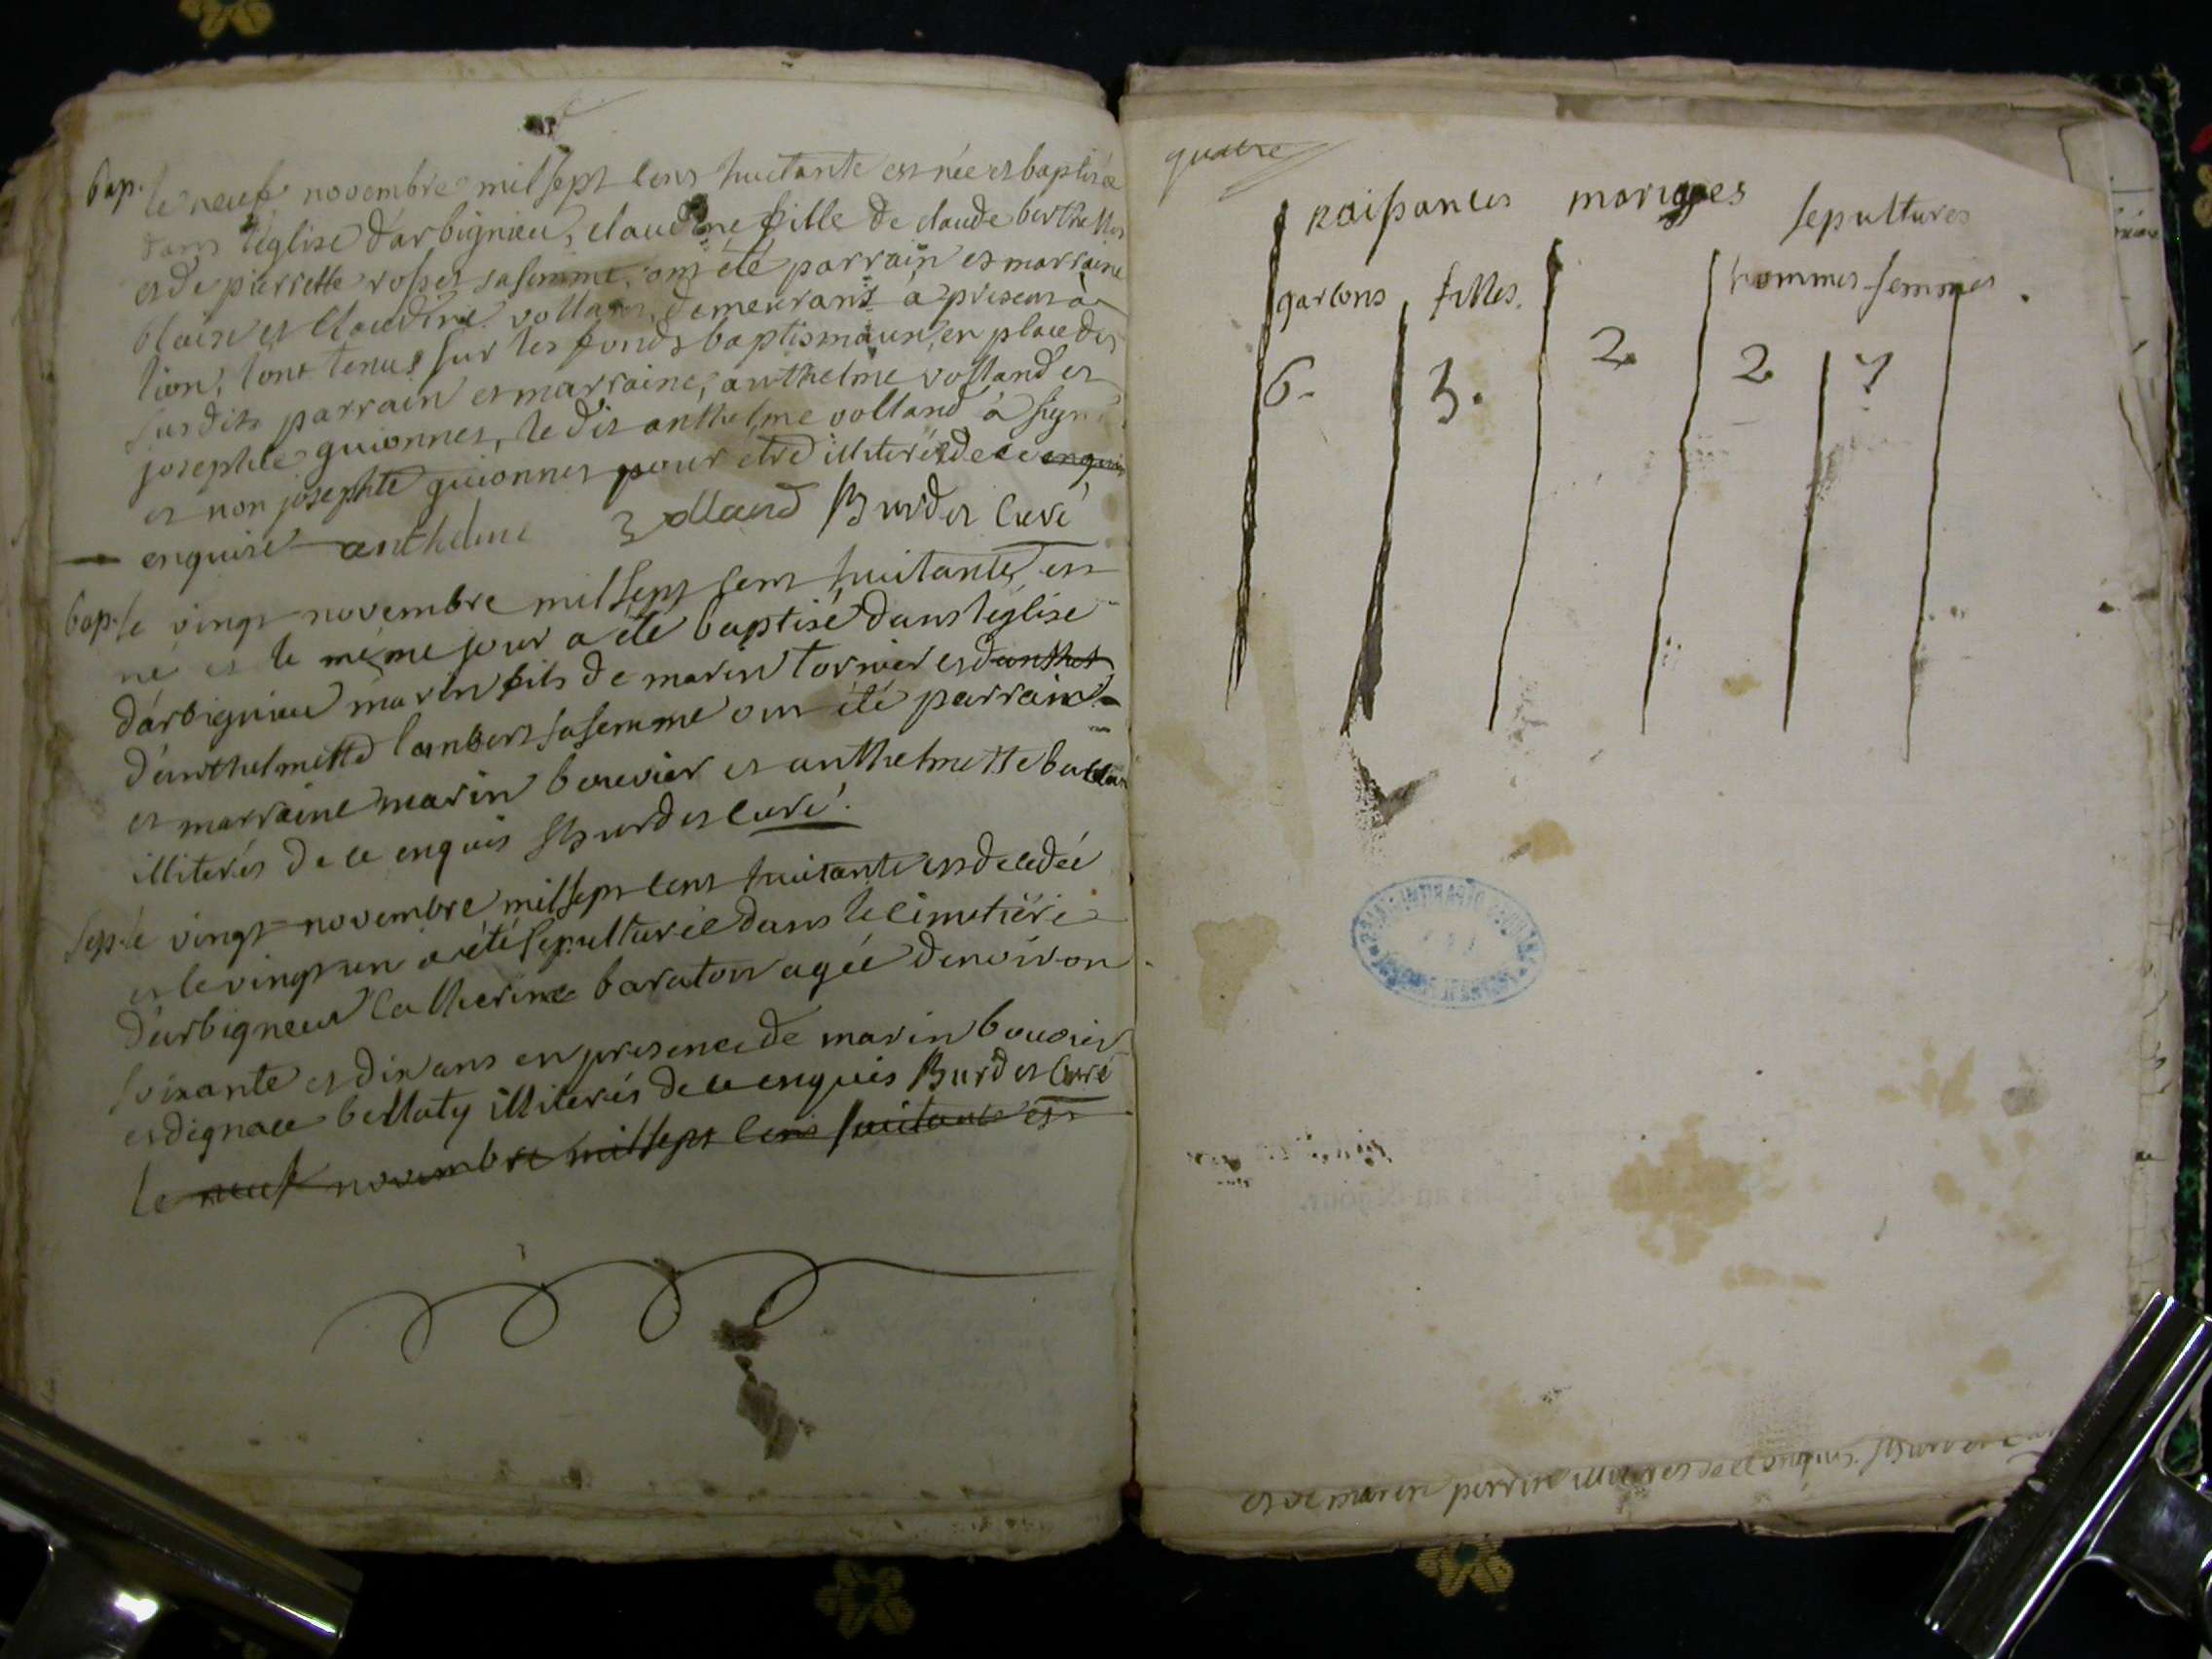 bap. le neuf novembre mil sept cens huitante est née et baptisée
dans l'église d'arbignieu, claudine fille de claude berthellet
et de pierrette rosset sa femme, ont été parrain et marraine
blaise et Claudine volland, demeurans à present à
lion, sont tenus sur les fonds baptismaux, en place des
susdits parrain et marraine, anthelme volland et
josephte guionnet, le dit anthelme volland à signé
et non josephte guionnet pour etre illiterés de ce enquis
enquise anthelme volland Burdet Curé
bap. le vingt novembre mil sept cens huitante est
né et le même jour a été baptisé dans l'église
d'arbignieu marin fils de marin tornier et d'anthel
d'anthelmette lambert sa femme ont été parrain
et marraine marin bouvier et anthelmette
illiterés de ce enquis Burdet curé.
Sep. le vingt novembre mil sept cens huitante est decedée
et le vingt un a été sepulturée dans le cimetiére
d'arbigneux Catherine baraton agée d'environ
soixante et dix ans en presence de marin bouvier
et d'ignace bellaty illiterés de ce enquis Burdet Curé
le neuf novembre mil sept cens huitante est
quatre
naissances mariages sepultures
garçons filles. hommes femmes.
6. 3. 2. 2 7
et de marin perrin illiterés de ce